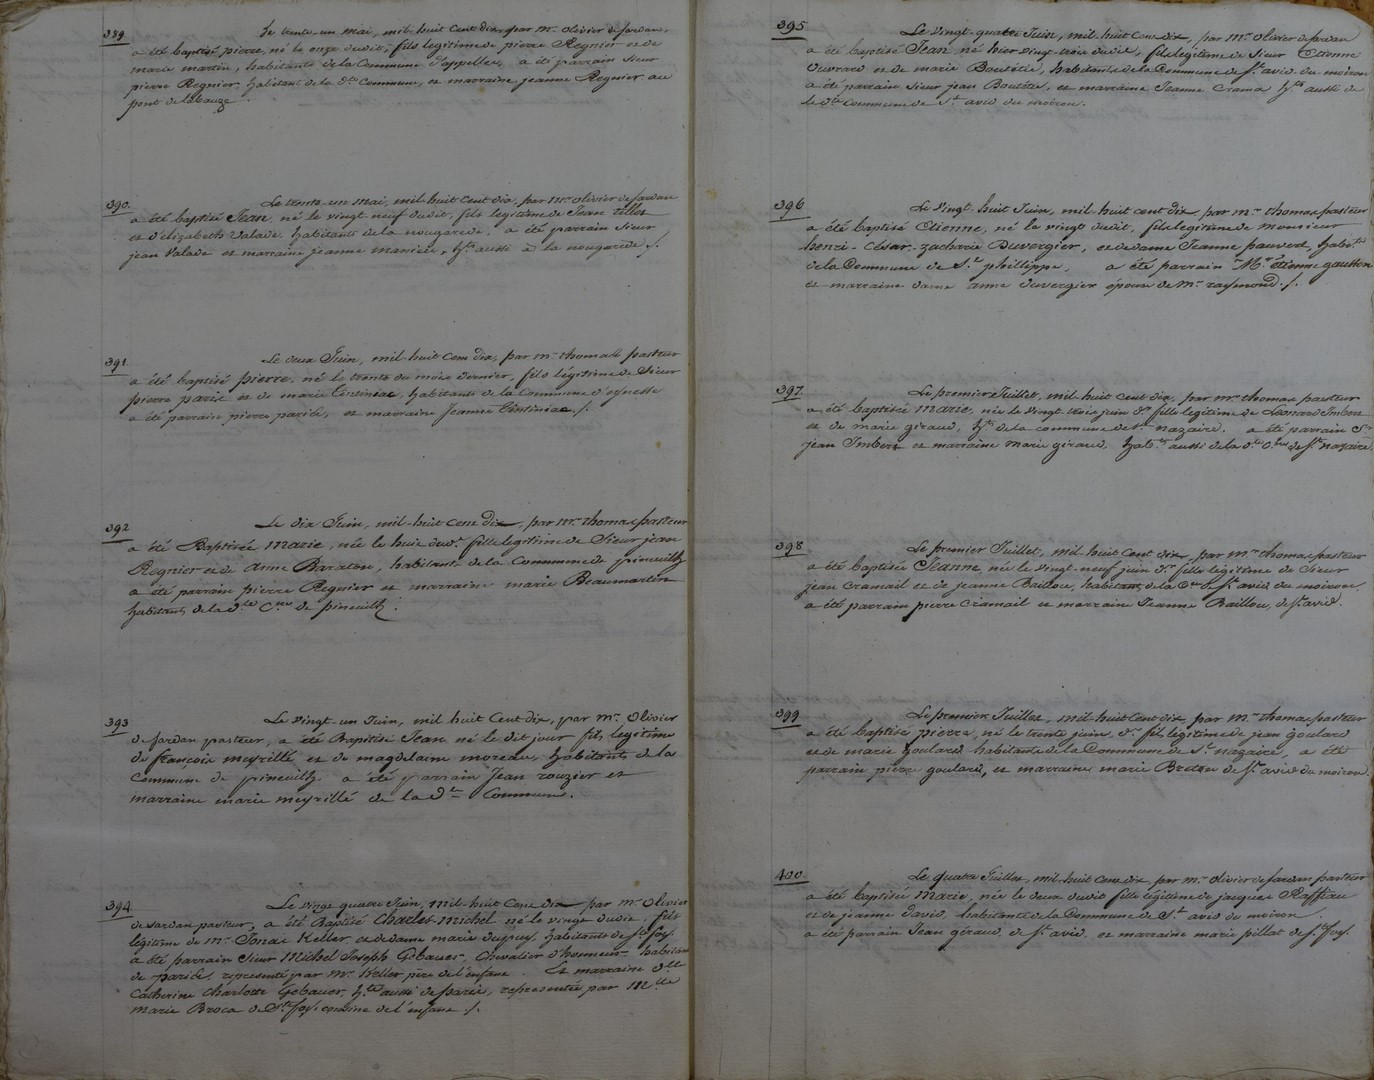 389
Le trente-un mai, mil-huit cent dix, par mr. olivier de Sardan,
a été baptisé pierre, né le onze dudit, fils légitime de pierre Regnier et de
marie martin, habitants de la Commune d'eppelles, a été parrain sieur
pierre Regnier, habitant de la de. Commune, et marraine jeanne Regnier au
pont de labauze.
390.
Le trente-un mai, mil-huit cent dix, par mr. olivier de Sardan
a été baptisé Jean, né le vingt neuf dudit, fils légitime de Jean tillet
et d'élizabeth Valade, habitants de la nougarede, a été parrain sieur
jean Valade et marraine jeanne , hts. aussi à la nougarede ./.
391.
Le deux Juin, mil-huit cent dix, par mr. thomas pasteur
a été baptisé pierre, né le trente du mois dernier, fils légitime de Sieur
pierre paris et de marie Tintiniac, habitants de la Commune d'eynesse
a été parrain pierre paris, et marraine Jeanne Tintiniac ./.
392
Le dix Juin, mil-huit cent dix, par mr. thomas pasteur
a été Baptisée marie, née le huit dudt. fille légitime de Sieur jean
Regnier et de Anne Barraton, habitants de la Commune de pineuilh
a été parrain pierre Regnier et marraine marie Beaumartin
habitants de la dite Cne de pineuilh.
393
Le vingt-un Juin, mil huit Cent dix, par mr. Olivier
de Sardan pasteur, a été Baptisé Jean né le dit jour fils légitime
de françois meyrillé et de magdelaine moreau, habitants de la
Commune de pineuilh. a été parrain Jean rouzier et
marraine marie meyrillé de la dte Commune.
394
Le vingt quatre Juin, mil-huit Cent dix par mr. Olivier
de Sardan pasteur, a été Baptisé Charles-Michel né le vingt dudit, fils
légitime de mr. Ignace Keller et de dame marie dupuy, habitants de Ste. foy.
a été parrain Sieur Michel Joseph Gébauer, Chevalier d'honneur habitant
de paris, représenté par mr. Keller père de l'enfant. Et marraine dlle
Catherine Charlotte Gébauer, hte aussi de paris, représentée par Mlle
marie Broca de Ste. foy, cousine de l'enfant ./.
395
Le vingt-quatre Juin, mil-huit Cent dix, par mr. olivier de Sardan
a été baptisé Jean, né hier vingt trois dudit, fils légitime de sieur Etienne
Ouvrard et de marie Boutétie, habitants de la Commune de St. avid du moiron
a été parrain sieur jean Boutétie, et marraine Jeanne Crama hts aussi de
la dte Commune de St. avid du moiron.
396
Le vingt huit Juin, mil huit cent dix, par mr. thomas pasteur
a été baptisé Etienne, né le vingt dudit, fils légitime de monsieur
henri-César-zacharie Duvergier, et de dame Jeanne pauvert, habts.
de la Commune de St. phillippe, a été parrain Mr. étienne gaussen
et marraine dame anne duvergier épouse de Mr. raymond ./.
397.
Le premier Juillet, mil-huit cent dix, par mr. thomas pasteur
a été baptisée Marie, née le vingt trois juin dr. fille légitime de Léonard Imbert
et de marie giraud, hts de la commune de St. nazaire. a été parrain Sr.
jean Imbert et marraine marie giraud, habts. aussi de la dte. Cne de St. nazaire.
398
Le premier Juillet, mil-huit Cent dix, par mr thomas pasteur
a été baptisée Jeanne, née le vingt-neuf juin dr. fille légitime de Sieur
jean Cramail et de jeanne Baillou, habitants de la Cne de St. avid du moiron.
a été parrain pierre Cramail et marraine Jeanne Baillou, de St. avid.
399
Le premier Juillet, mil-huit Cent dix par mr. thomas pasteur
a été baptisé pierre, né le trente juin, dr. fils légitime de jean goulard
et de marie goulard, habitants de la Commune de St. nazaire, a été
parrain pierre goulard, et marraine marie Breton de St. avid du moiron.
400
Le quatre Juillet, mil-huit Cent dix par mr. olivier de Sardan pasteur
a été baptisée Marie, née le deux dudit fille légitime de jacques Raffteau
et de jeanne David, habitants de la Commune de St. avid du moiron.
a été parrain Jean géraud de St. avid, et marraine marie pillet de Ste. foy.